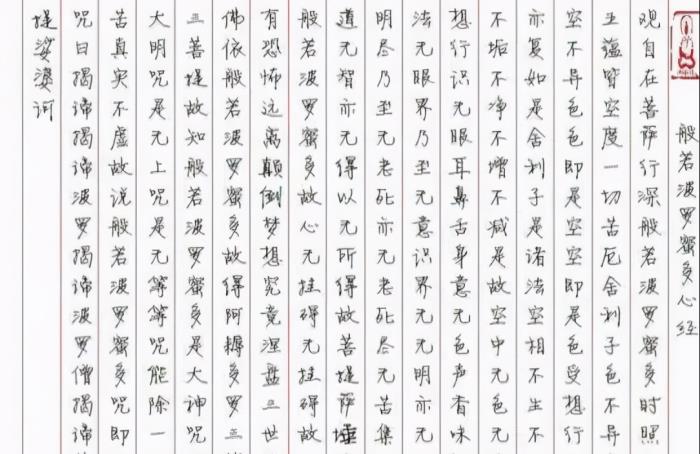 般若波罗蜜多心经
观自在菩萨行深般若波罗蜜多时照
五蕴皆空度一切苦厄舍利子色不异
空不异色色即是空空即是色受想行
亦复如是舍利子是诸法空相不生不
不垢不净不增不减是故空中无色无
想行识无眼耳鼻舌身意无色声香味
法无眼界乃至无意识界无无明亦无
明尽乃至无老死亦无老死尽无苦集
道无智亦无得以无所得故菩提萨埵
般若波罗蜜多故心无挂碍无挂碍故
有恐怖远离颠倒梦想究竟涅盘三世
佛依般若波罗蜜多故得阿耨多罗三
三菩提故知般若波罗蜜多是大神咒
大明咒是无上咒是无等等咒能除一
苦真实不虚故说般若波罗蜜多咒即
咒曰揭谛揭谛波罗揭谛波罗僧揭谛
提娑婆诃